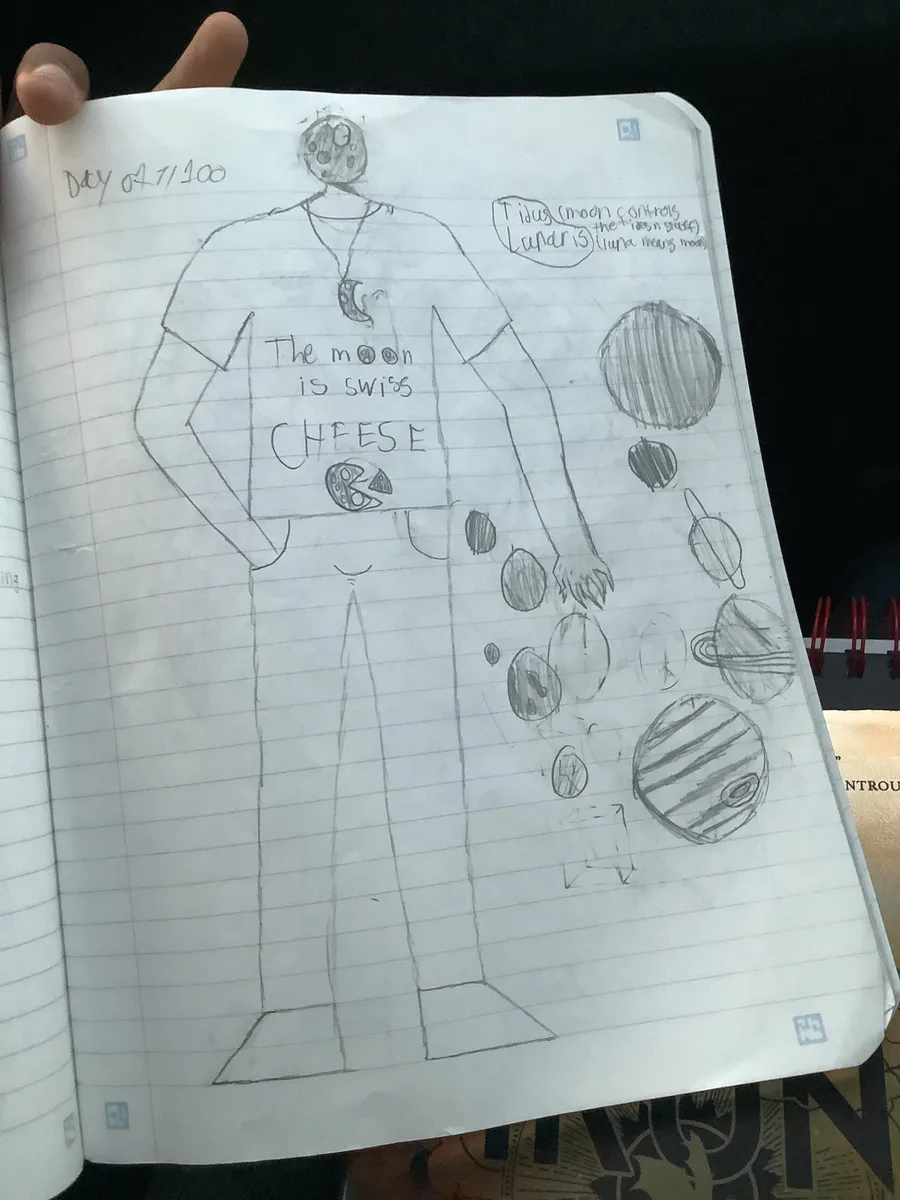 Day of 1/100
Tidus (moon controls
the tides n stuff)
Lunaris (luna means moon)
The moon
is swiss
CHEESE
ing
"
NTROU
ON